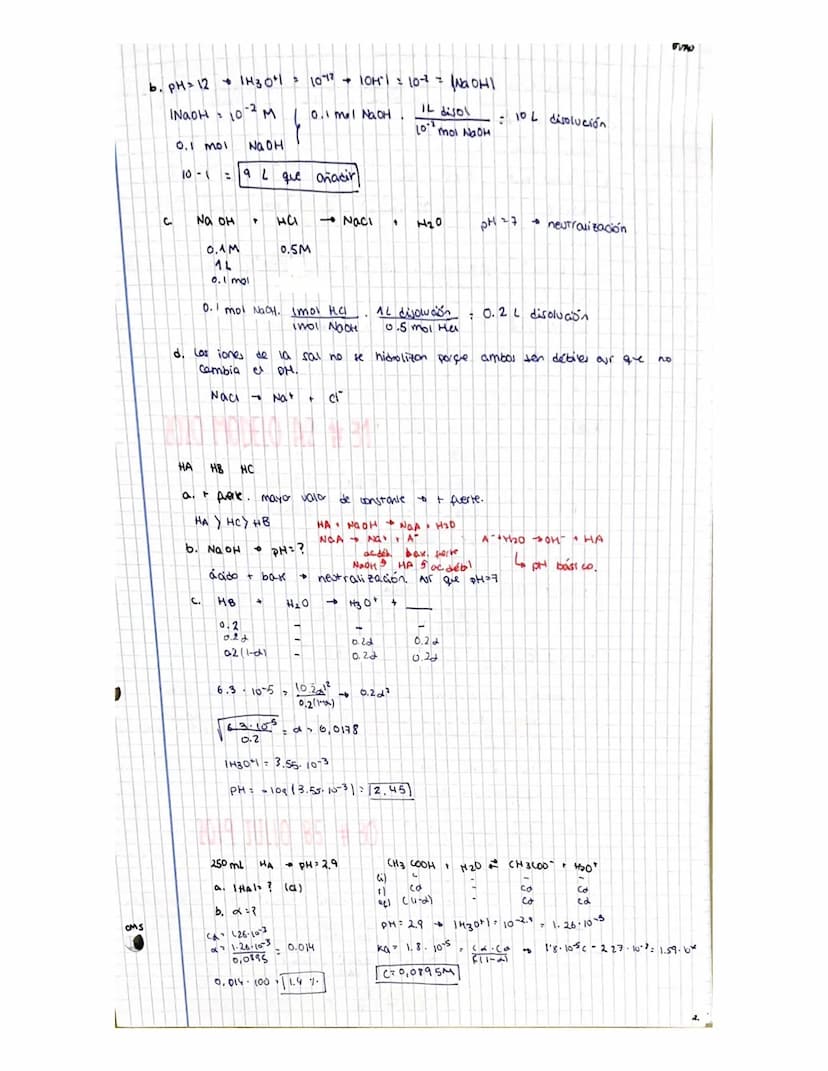 b. pH = 12 → |H3O+| = 10^-12 → |OH-| = 10^-2 = |NaOH|
|NaOH = 10^-2 M
0.1 mol NaOH
0.1 mol NaOH · 1L disol / 10^-2 mol NaOH = 10 L disolución
10 - 1 = 9 L que añadir
c NaOH + HCl → NaCl + H2O pH = 7 → neutralización
0.1M 0.5M
1L
0.1 mol
0.1 mol NaOH. 1mol HCl / 1mol NaOH . 1L disolución / 0.5 mol HCl = 0.2 L disolución
d. Los iones de la sal no se hidrolizan porque ambos son débiles así que no
cambia el pH.
NaCl → Na+ + Cl-
HA HB HC
a. + fuerte. mayor valor de constante → + fuerte.
HA > HC > HB
HA + NaOH → NaA + H2O
NaA → Na+ + A-
ac déb. bas. fuerte
NaOH HA ac débil
A- + H2O → OH- + HA
↳ pH básico.
b. NaOH → pH = ?
ácido + base → neutralización. así que pH=7
c. HB + H2O → H3O+ + ___
0.2 - - -
0.2α - 0.2α 0.2α
0.2(1-α) - 0.2α 0.2α
6.3 · 10^-5 = (0.2α)^2 / 0.2(1-α) → 0.2α²
√(6.3·10^-5 / 0.2) = α = 0,0178
|H3O+| = 3.55·10^-3
pH = -log(3.55·10^-3) = 2.45
250 mL HA → pH = 2.9
a. |HA| = ? (a)
b. α = ?
cα = 1.26·10^-3
α = 1.26·10^-3 / 0,0895 = 0.014
0,014 · 100 = 1.4 %
CH3COOH + H2O ⇄ CH3COO- + H3O+
(i) c - - -
r) cα - cα cα
eq) c(1-α) - cα cα
pH = 2.9 → |H3O+| = 10^-2.9 = 1.26·10^-3
Ka = 1.8 · 10^-5 = cα·cα / c(1-α) → 1'8·10^-5c - 2.27·10^-8 = 1.59·10^-6
C = 0,0895M
CMS
2.